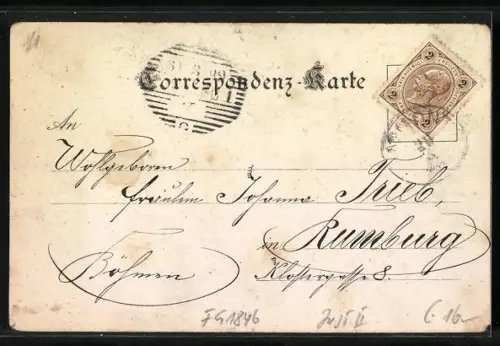 Correspondenz-Karte
An
Wohlgeboren
Fräulein Johanna Trieb,
in Rumburg
Klostergasse 8.
Böhmen
FG1846